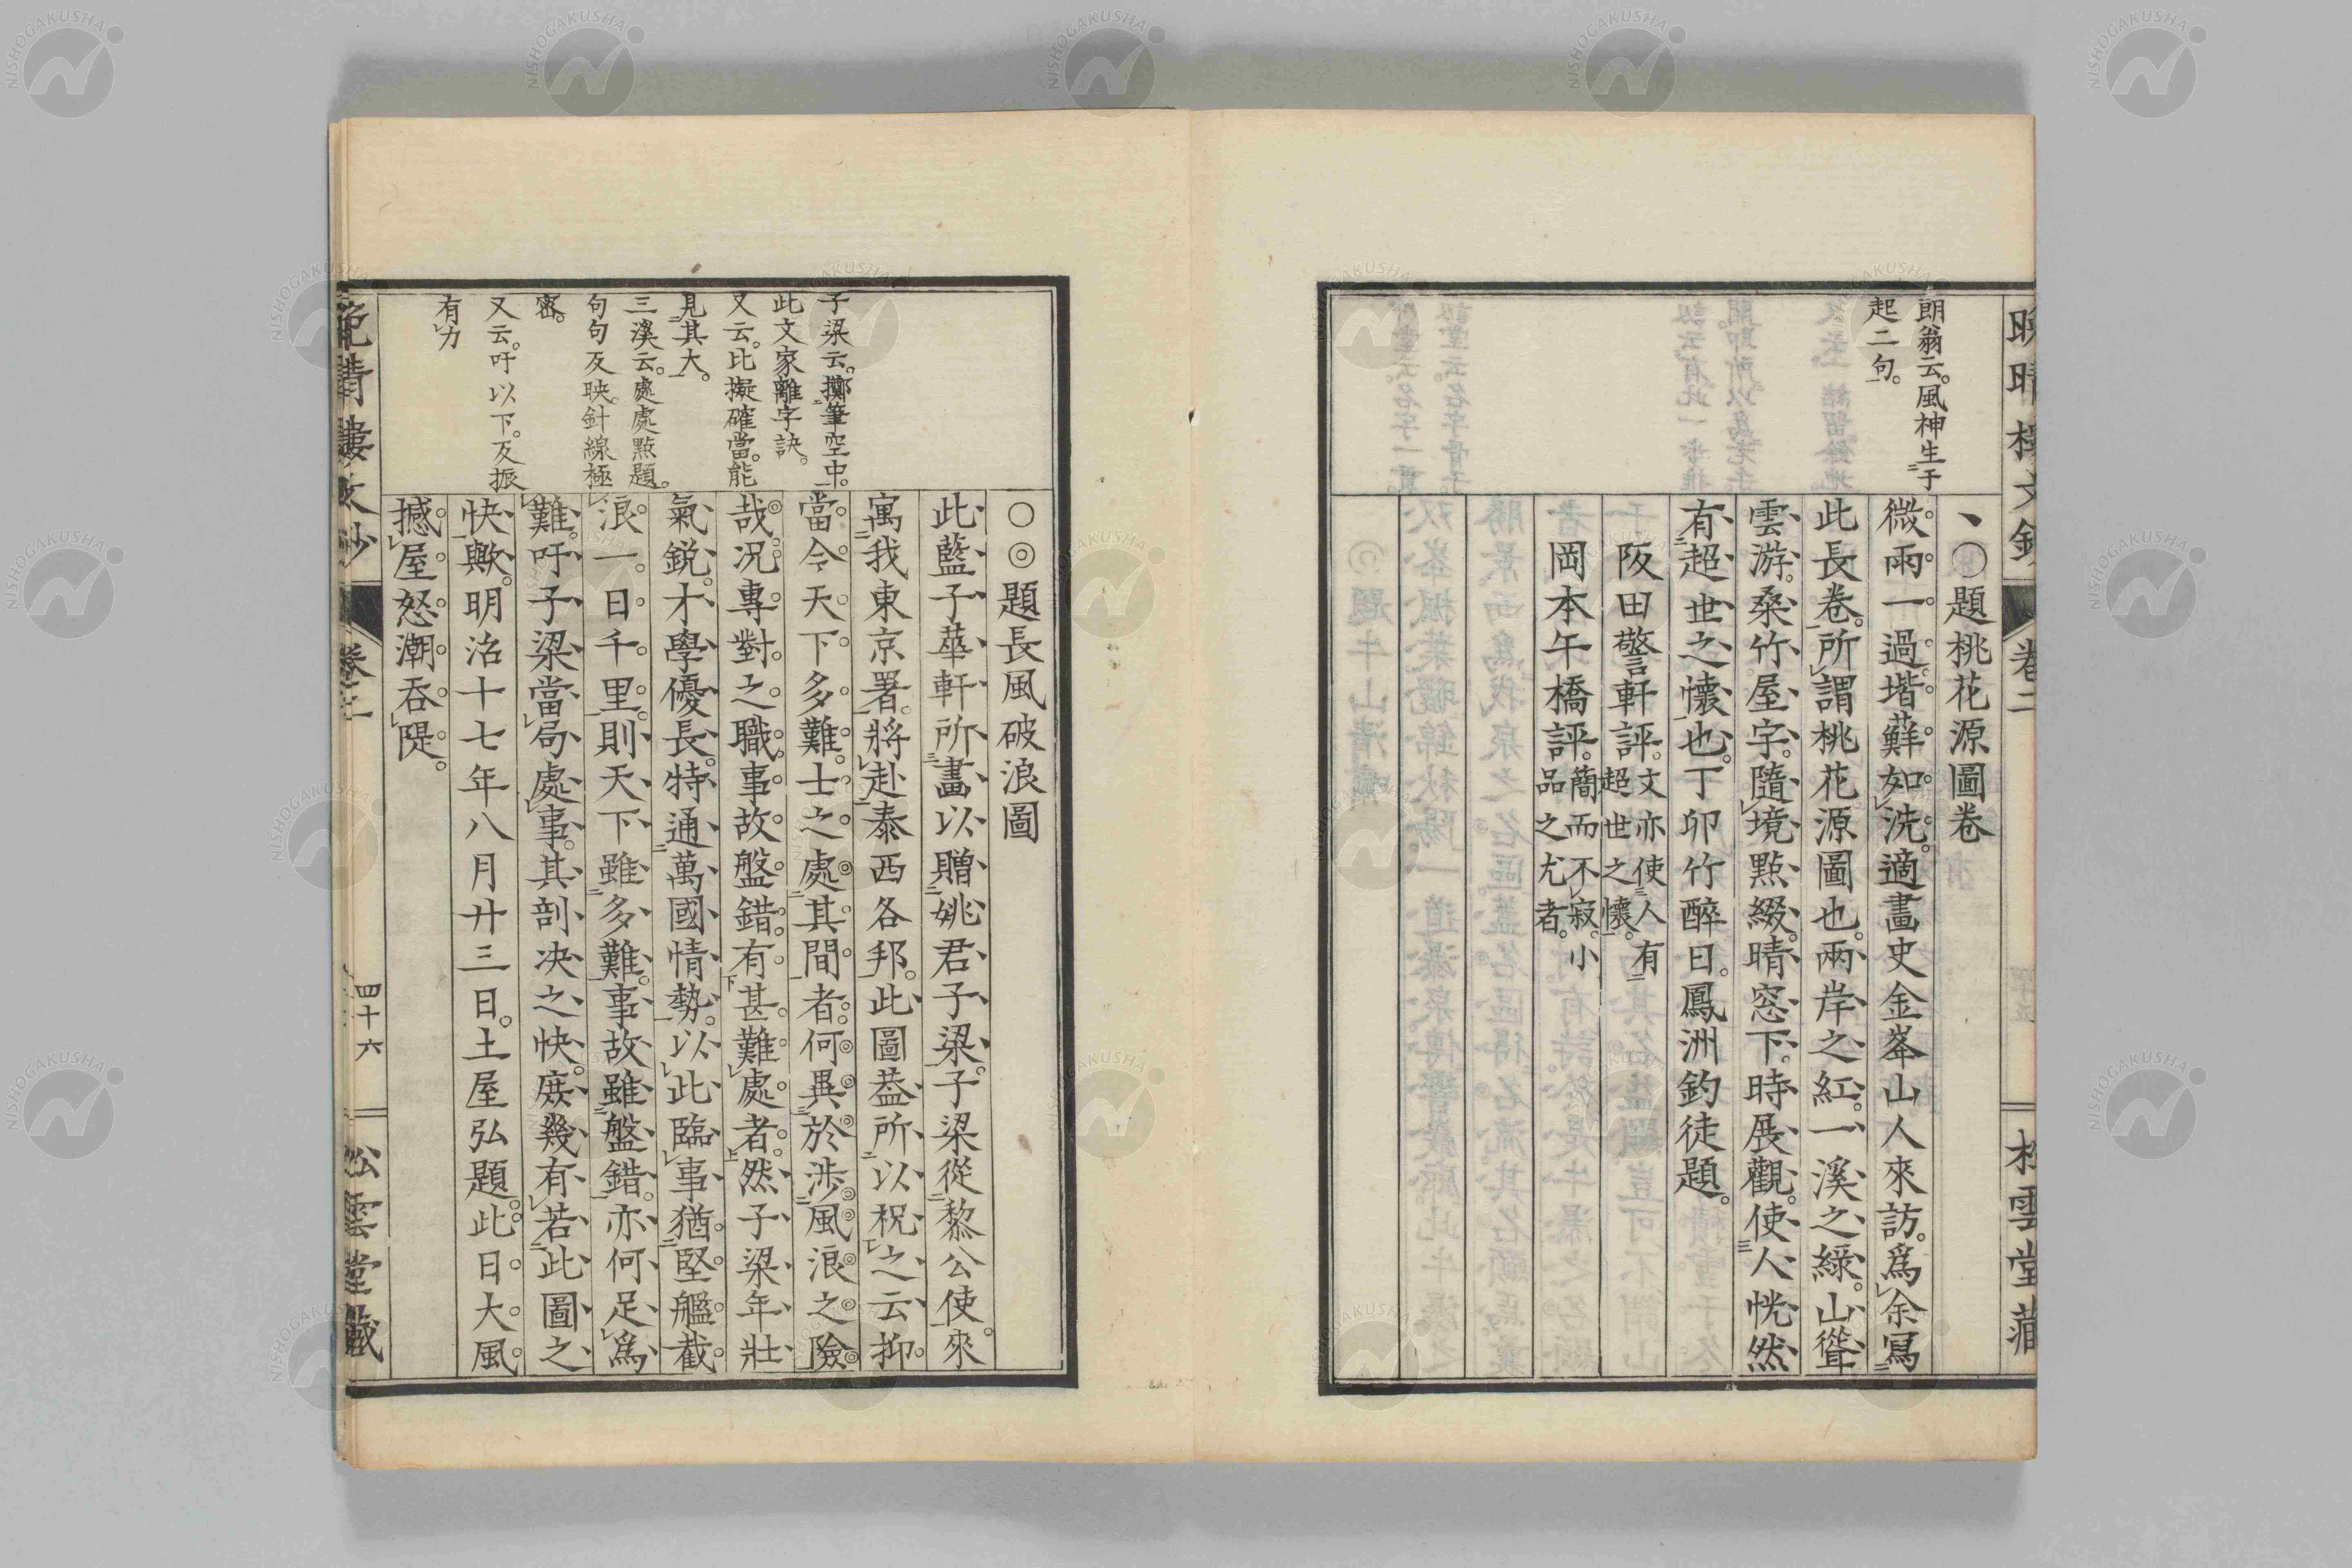 晩晴樓文鈔 卷二 松雲堂藏
朗翁云。風神生于
起二句。
、○題桃花源圖卷
微雨一過。堦蘚如洗。適畫史金峯山人來訪。爲余寫
此長卷。所謂桃花源圖也。兩岸之紅。一溪之綠。山聳
雲游。桑竹屋宇。隨境點綴。晴窓下。時展觀。使人恍然
有超世之懷也。丁卯竹醉日。鳳洲釣徒題。
阪田警軒評。文亦使人有
超世之懷。
岡本午橋評。簡而不寂。小
品之尤者。
子梁云。擲筆空中。
此文家離字訣。
又云。比擬確當。能
見其大。
三溪云。處處點題。
句句反映。針線極
密。
又云。吁以下。反振
有力
○◎題長風破浪圖
此藍子華軒所畫以贈姚君子梁。子梁從黎公使。來
寓我東京署。將赴泰西各邦。此圖葢所以祝之云。抑
當今天下多難。士之處其間者。何異於涉風浪之險
哉。况專對之職。事故盤錯。有甚難處者。然子梁年壯
氣銳。才學優長。特通萬國情勢。以此臨事。猶堅艦截
浪。一日千里。則天下雖多難。事故雖盤錯。亦何足爲
難。吁子梁當局處事。其剖決之快。庶幾有若此圖之
快歟。明治十七年八月廿三日。土屋弘題。此日大風
撼屋。怒潮吞隄。
晩晴樓文鈔 卷二 四十六 松雲堂藏